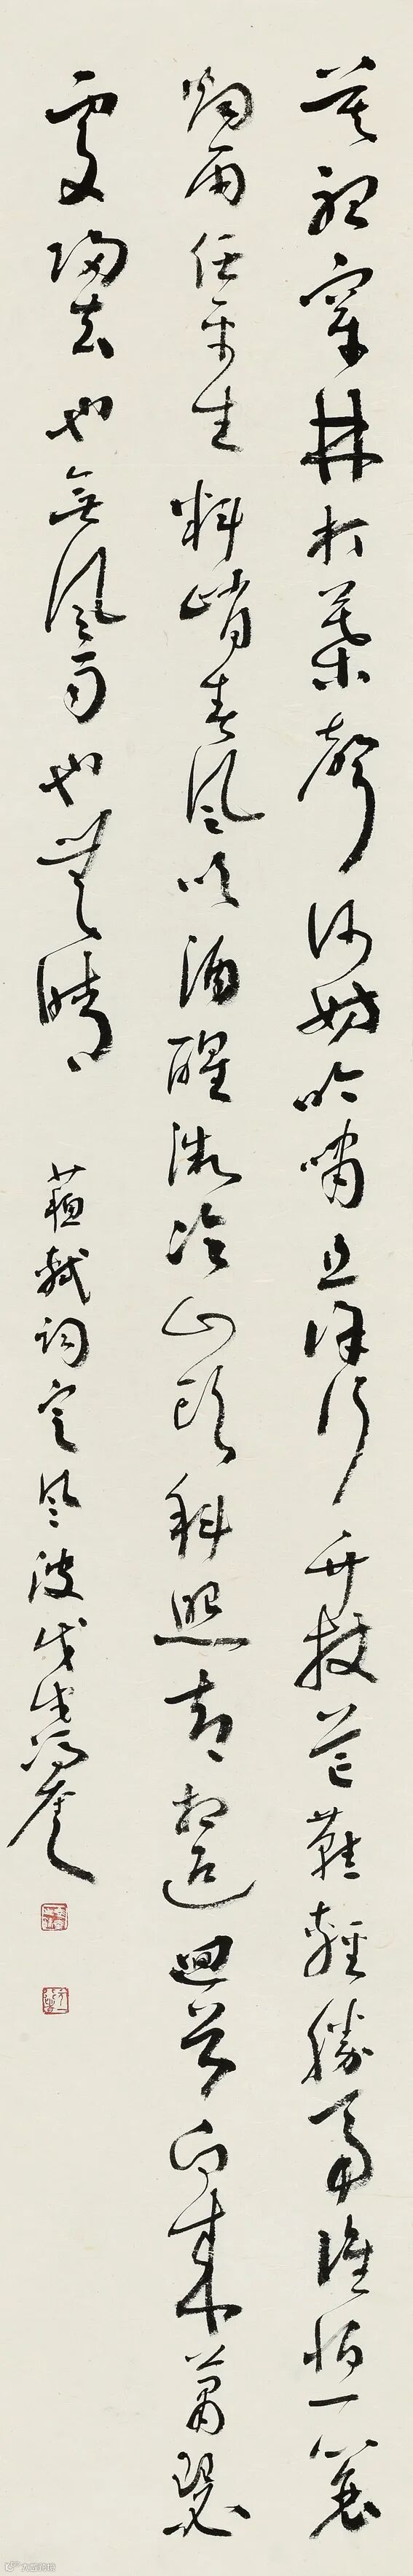 莫聽穿林打葉聲何妨吟嘯且徐行竹杖芒鞋輕勝馬誰怕一蓑
烟雨任平生料峭春風吹酒醒微冷山頭斜照却相迎回首向來蕭瑟
處歸去也無風雨也無晴
蘇軾詞定風波戊戌